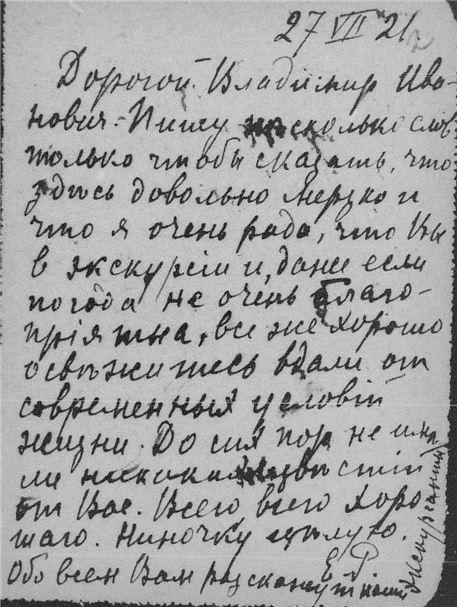 27 VII 21.
Дорогой Владимир Ива-
нович. Пишу нѣсколько слов
только чтобы сказать, что
здѣсь довольно мерзко и
что я очень рада, что Вы
в экскурсіи и, даже если
погода не очень благо-
пріятна, все же хорошо
освѣжитесь вдали от
современных условій
жизни. До сих пор не имѣ
ли никаких извѣстій
от Вас. Всего, всего хоро
шаго. Ниночку цѣлую.
Е. Р.
Обо всем Вам разскажут наши
экскурсанты